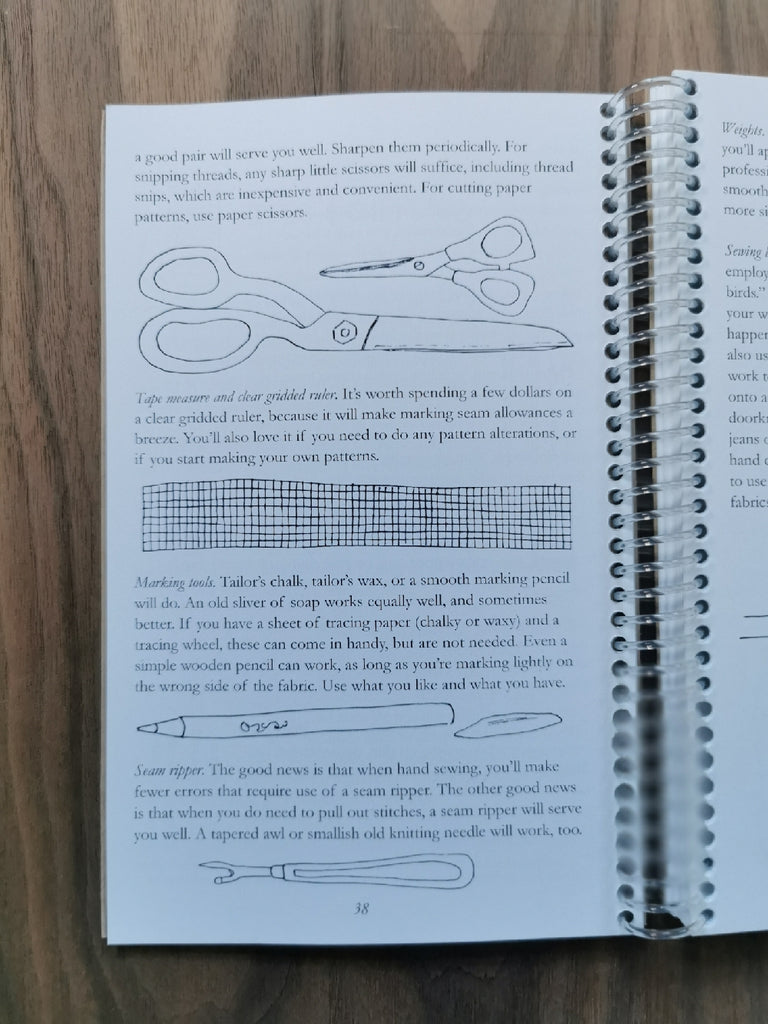 a good pair will serve you well. Sharpen them periodically. For
snipping threads, any sharp little scissors will suffice, including thread
snips, which are inexpensive and convenient. For cutting paper
patterns, use paper scissors.
Tape measure and clear gridded ruler. It's worth spending a few dollars on
a clear gridded ruler, because it will make marking seam allowances a
breeze. You'll also love it if you need to do any pattern alterations, or
if you start making your own patterns.
Marking tools. Tailor's chalk, tailor's wax, or a smooth marking pencil
will do. An old sliver of soap works equally well, and sometimes
better. If you have a sheet of tracing paper (chalky or waxy) and a
tracing wheel, these can come in handy, but are not needed. Even a
simple wooden pencil can work, as long as you're marking lightly on
the wrong side of the fabric. Use what you like and what you have.
Seam ripper. The good news is that when hand sewing, you'll make
fewer errors that require use of a seam ripper. The other good news
is that when you do need to pull out stitches, a seam ripper will serve
you well. A tapered awl or smallish old knitting needle will work, too.
38
Weights.
you'll
smooth
more
Sewing
employ
birds."
your
also
work
onto a
jeans
hand
to use